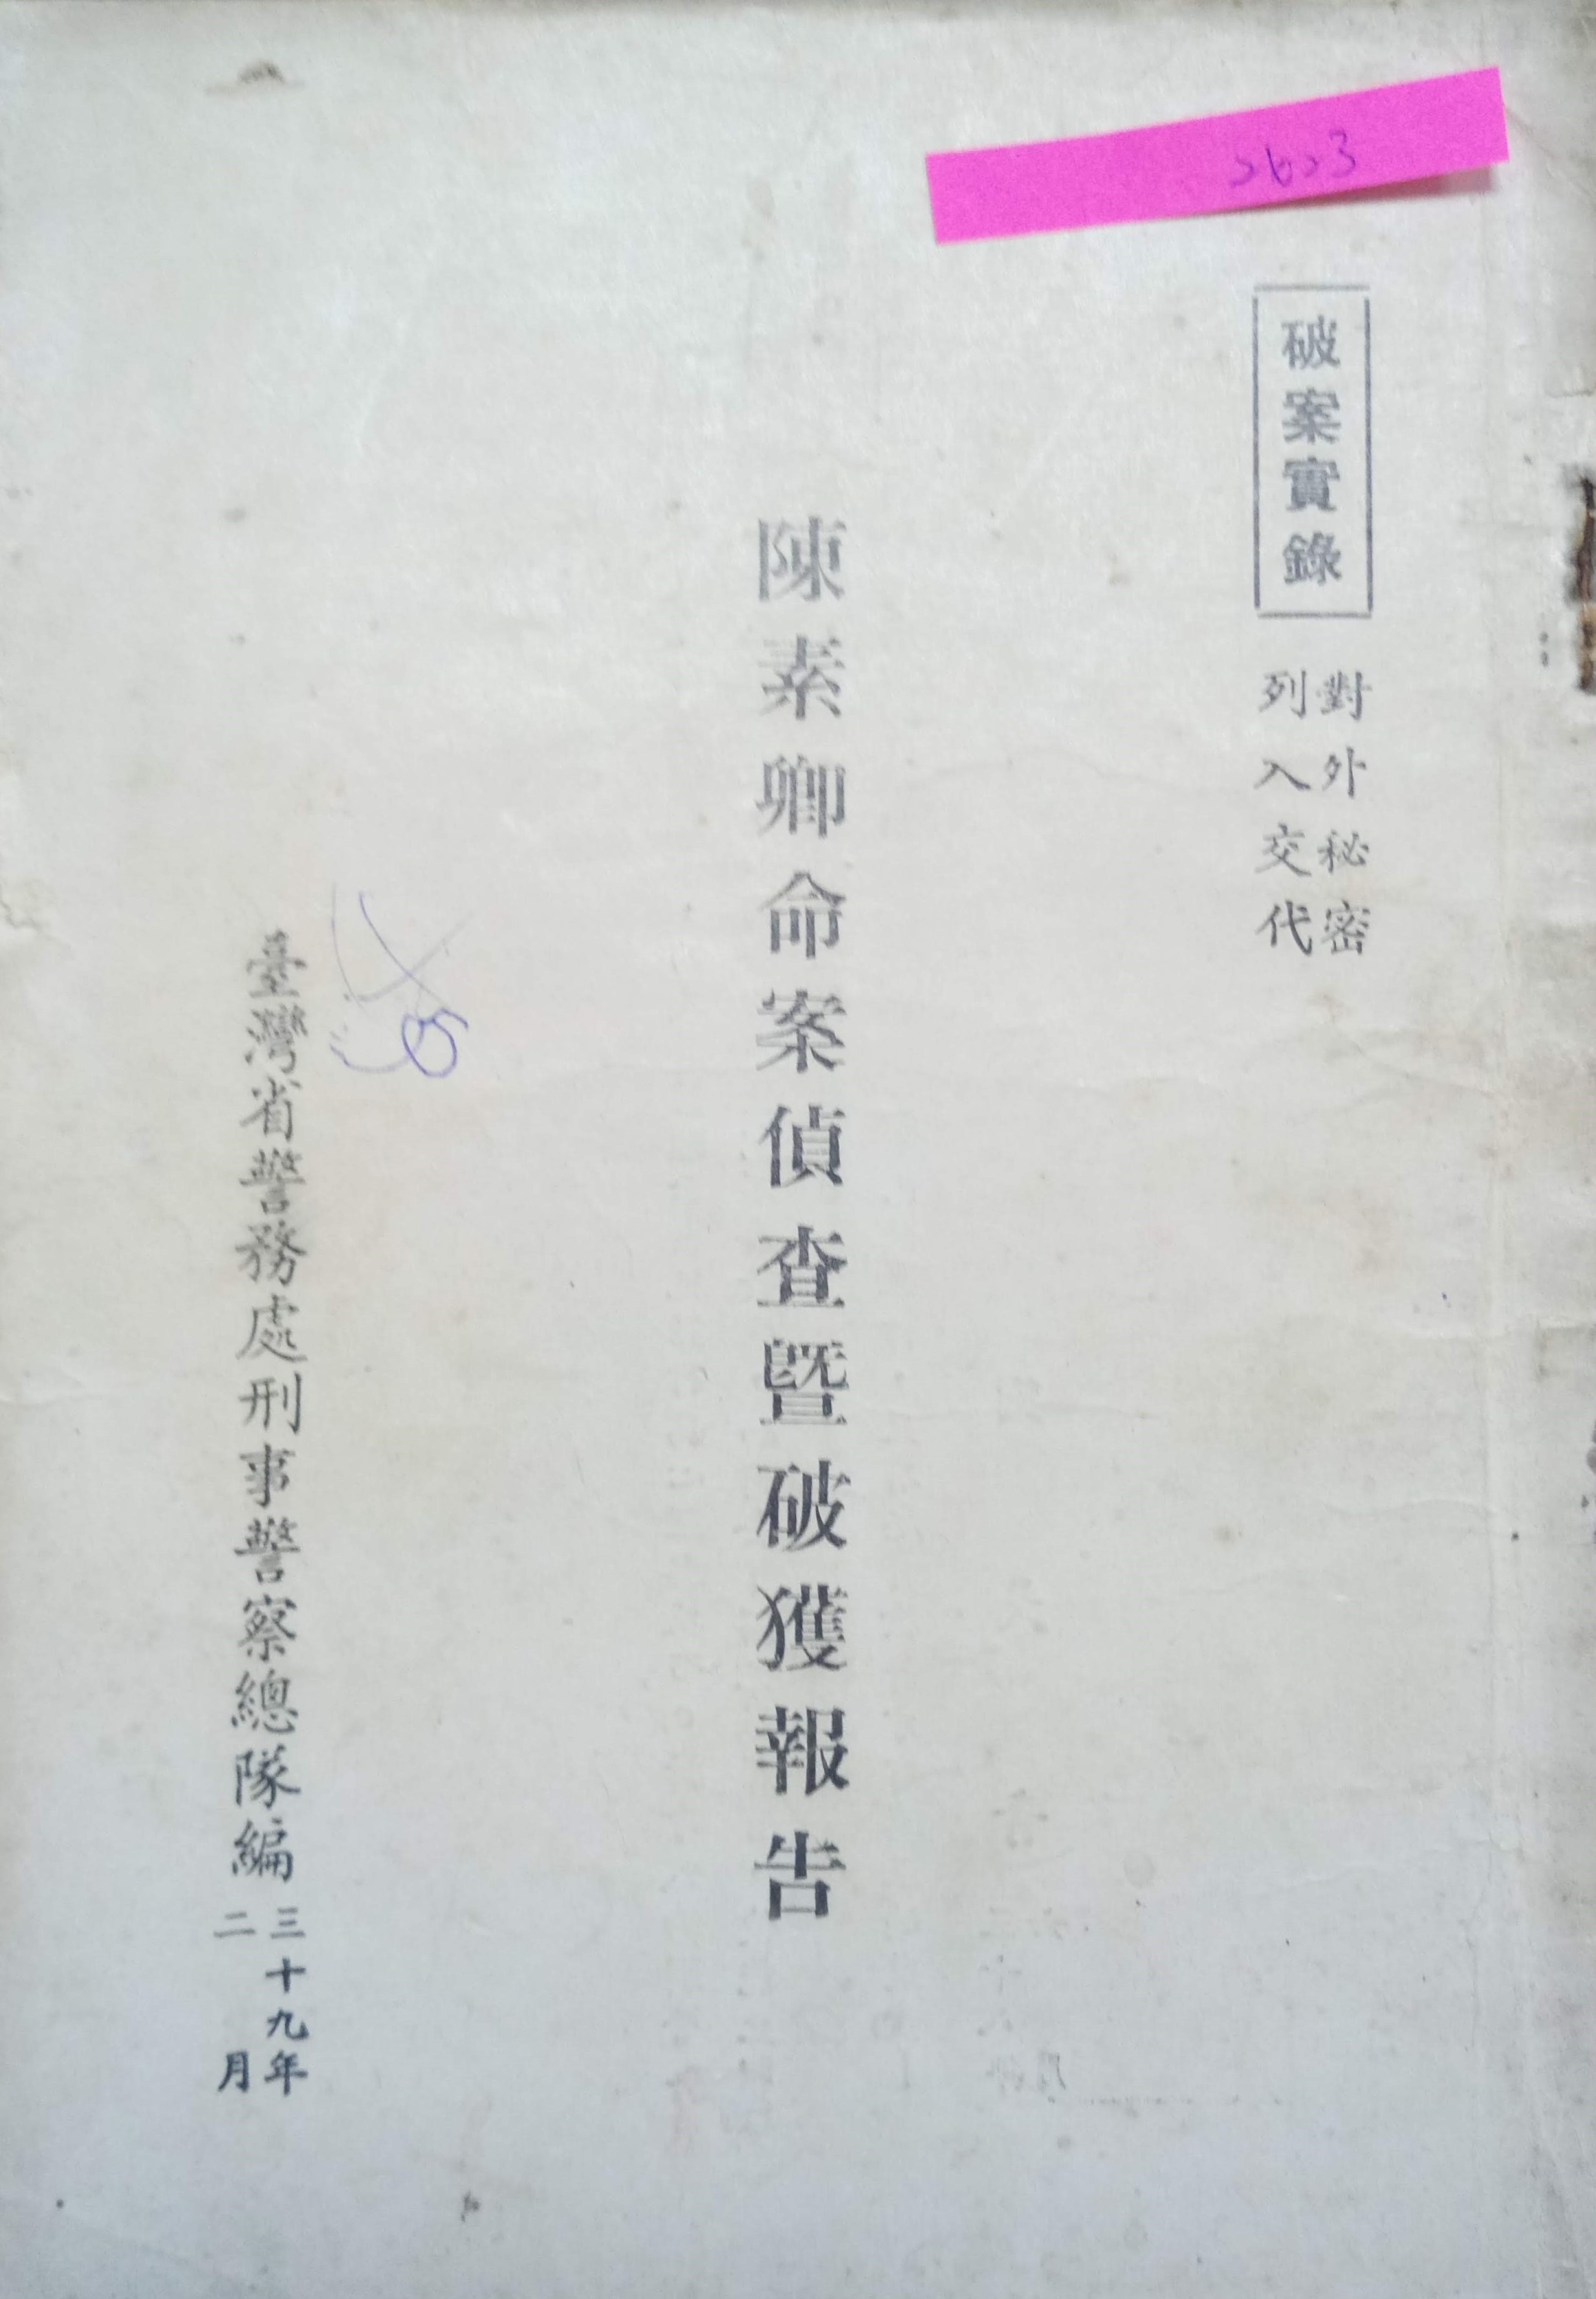 破案實錄
對外秘密
列入交代
陳素卿命案偵查暨破獲報告
臺灣省警務處刑事警察總隊編
三十九年
二月